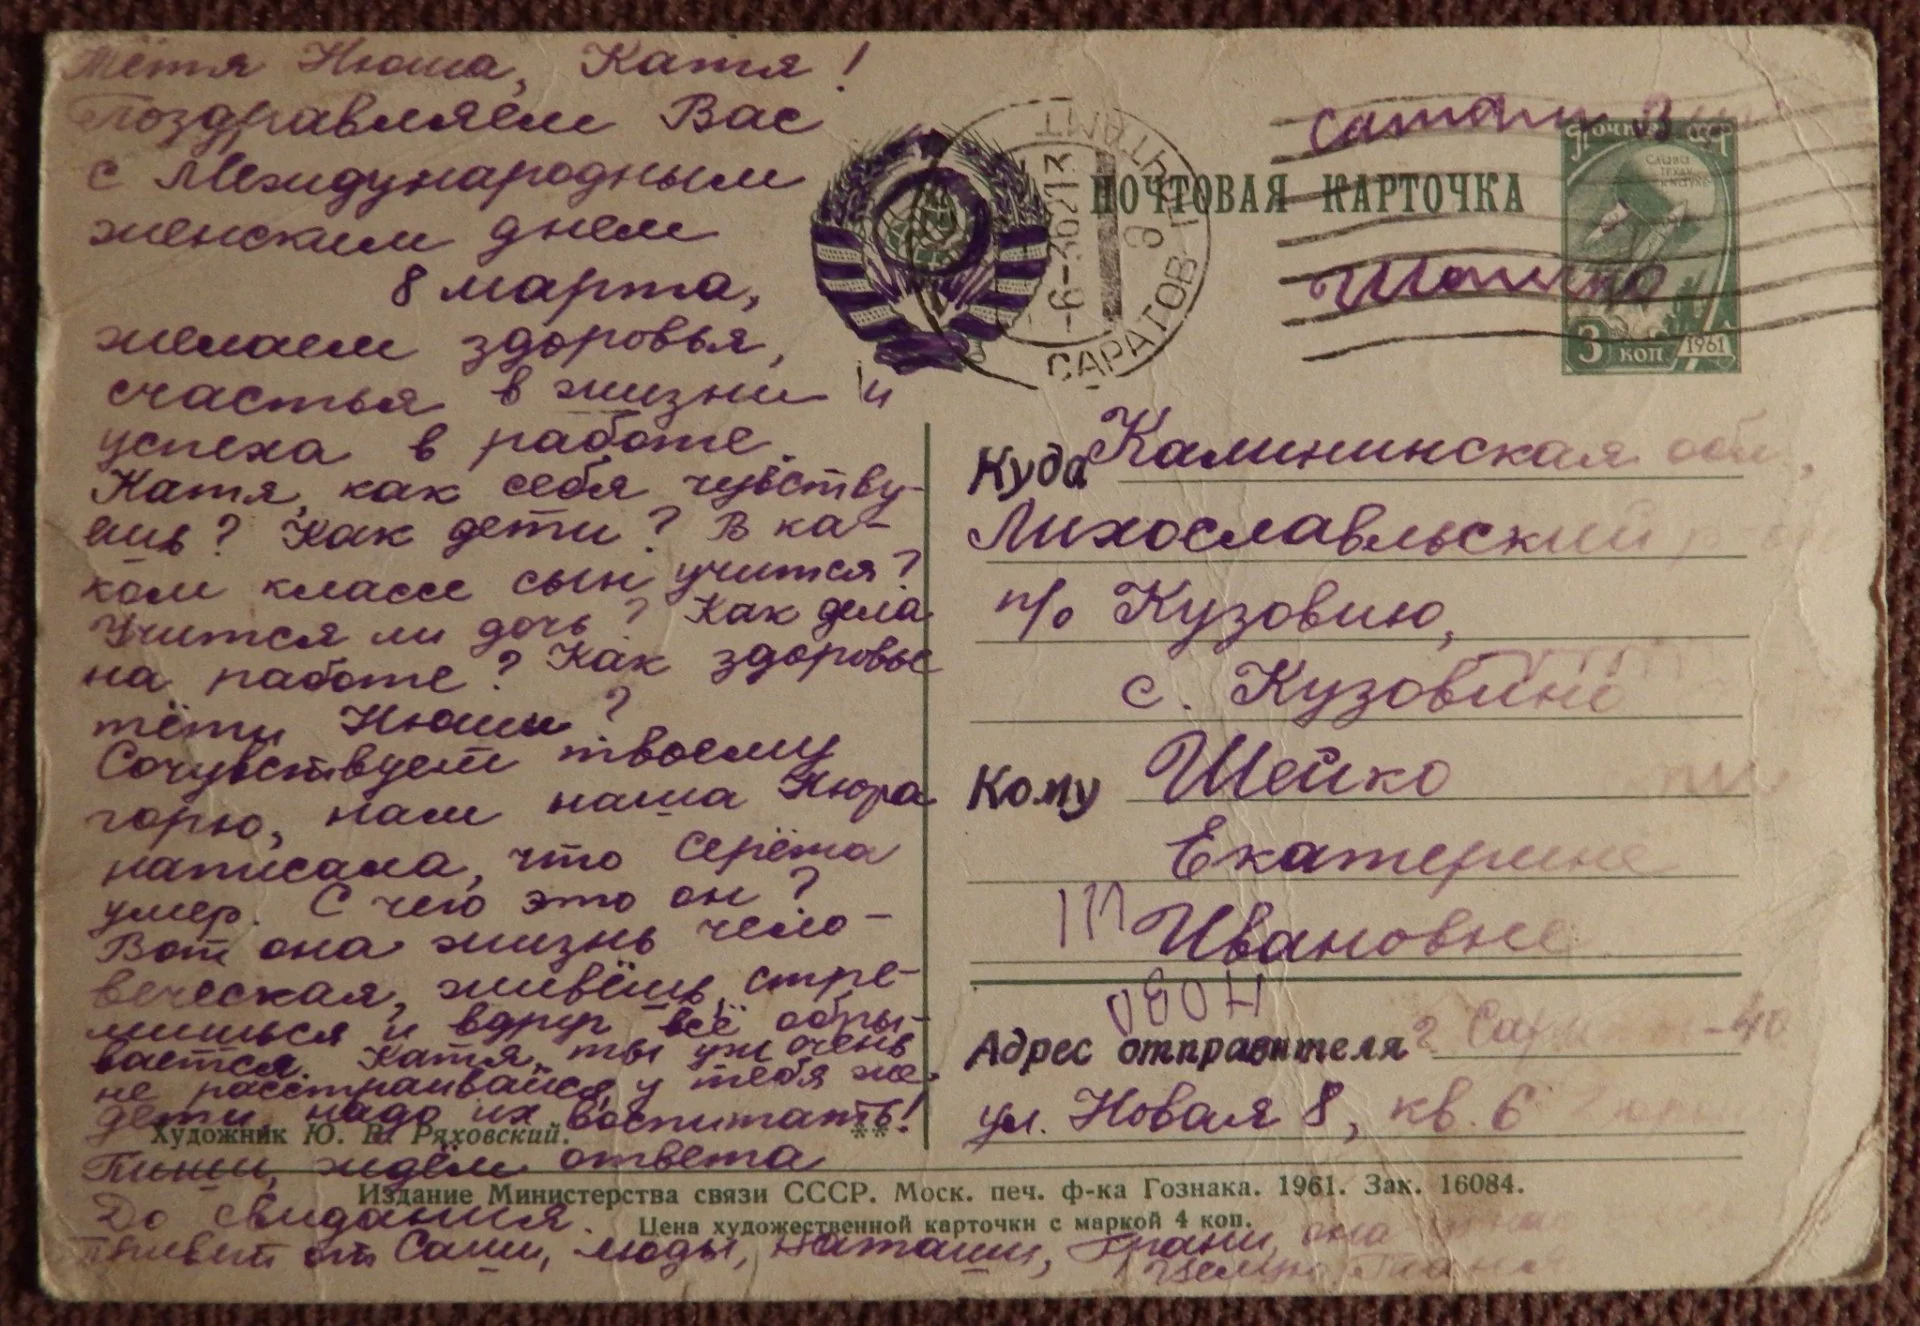 Тётя Нюша, Катя!
Поздравляем Вас
с Международным
женским днем
8 марта,
желаем здоровья,
счастья в жизни и
успеха в работе.
Катя, как себя чувству-
ешь? Как дети? В ка-
ком классе сын учится?
Учится ли дочь? Как дела
на работе? Как здоровье
тёти Нюши?
Сочувствуем твоему
горю, нам наша Нюра
написала, что Серёжа
умер. С чего это он?
Вот она жизнь чело-
веческая, живёшь, стре-
мишься и вдруг всё обры-
вается. Катя, ты уж очень
не расстраивайся, у тебя же
дети, надо их воспитать!
Художник Ю. В. Ряховский.
**
Пиши, ждём ответа
До свидания.
Привет от Саши, Люды, Наташи, Грани, она
Издание Министерства связи СССР. Моск. печ. ф-ка Гознака. 1961. Зак. 16084.
Цена художественной карточки с маркой 4 коп.
ПОЧТОВАЯ КАРТОЧКА
ПОЧТАМТ
-6-36213
8
САРАТОВ
Почта СССР
СЛАВА
ТРУДУ
И НАУКЕ
3 коп 1961
Куда Калининская обл,
Лихославльский
п/о Кузовино,
с. Кузовино
Кому Шейко
Екатерине
Ивановне
Адрес отправителя г Саратов-40
ул. Новая 8, кв. 6